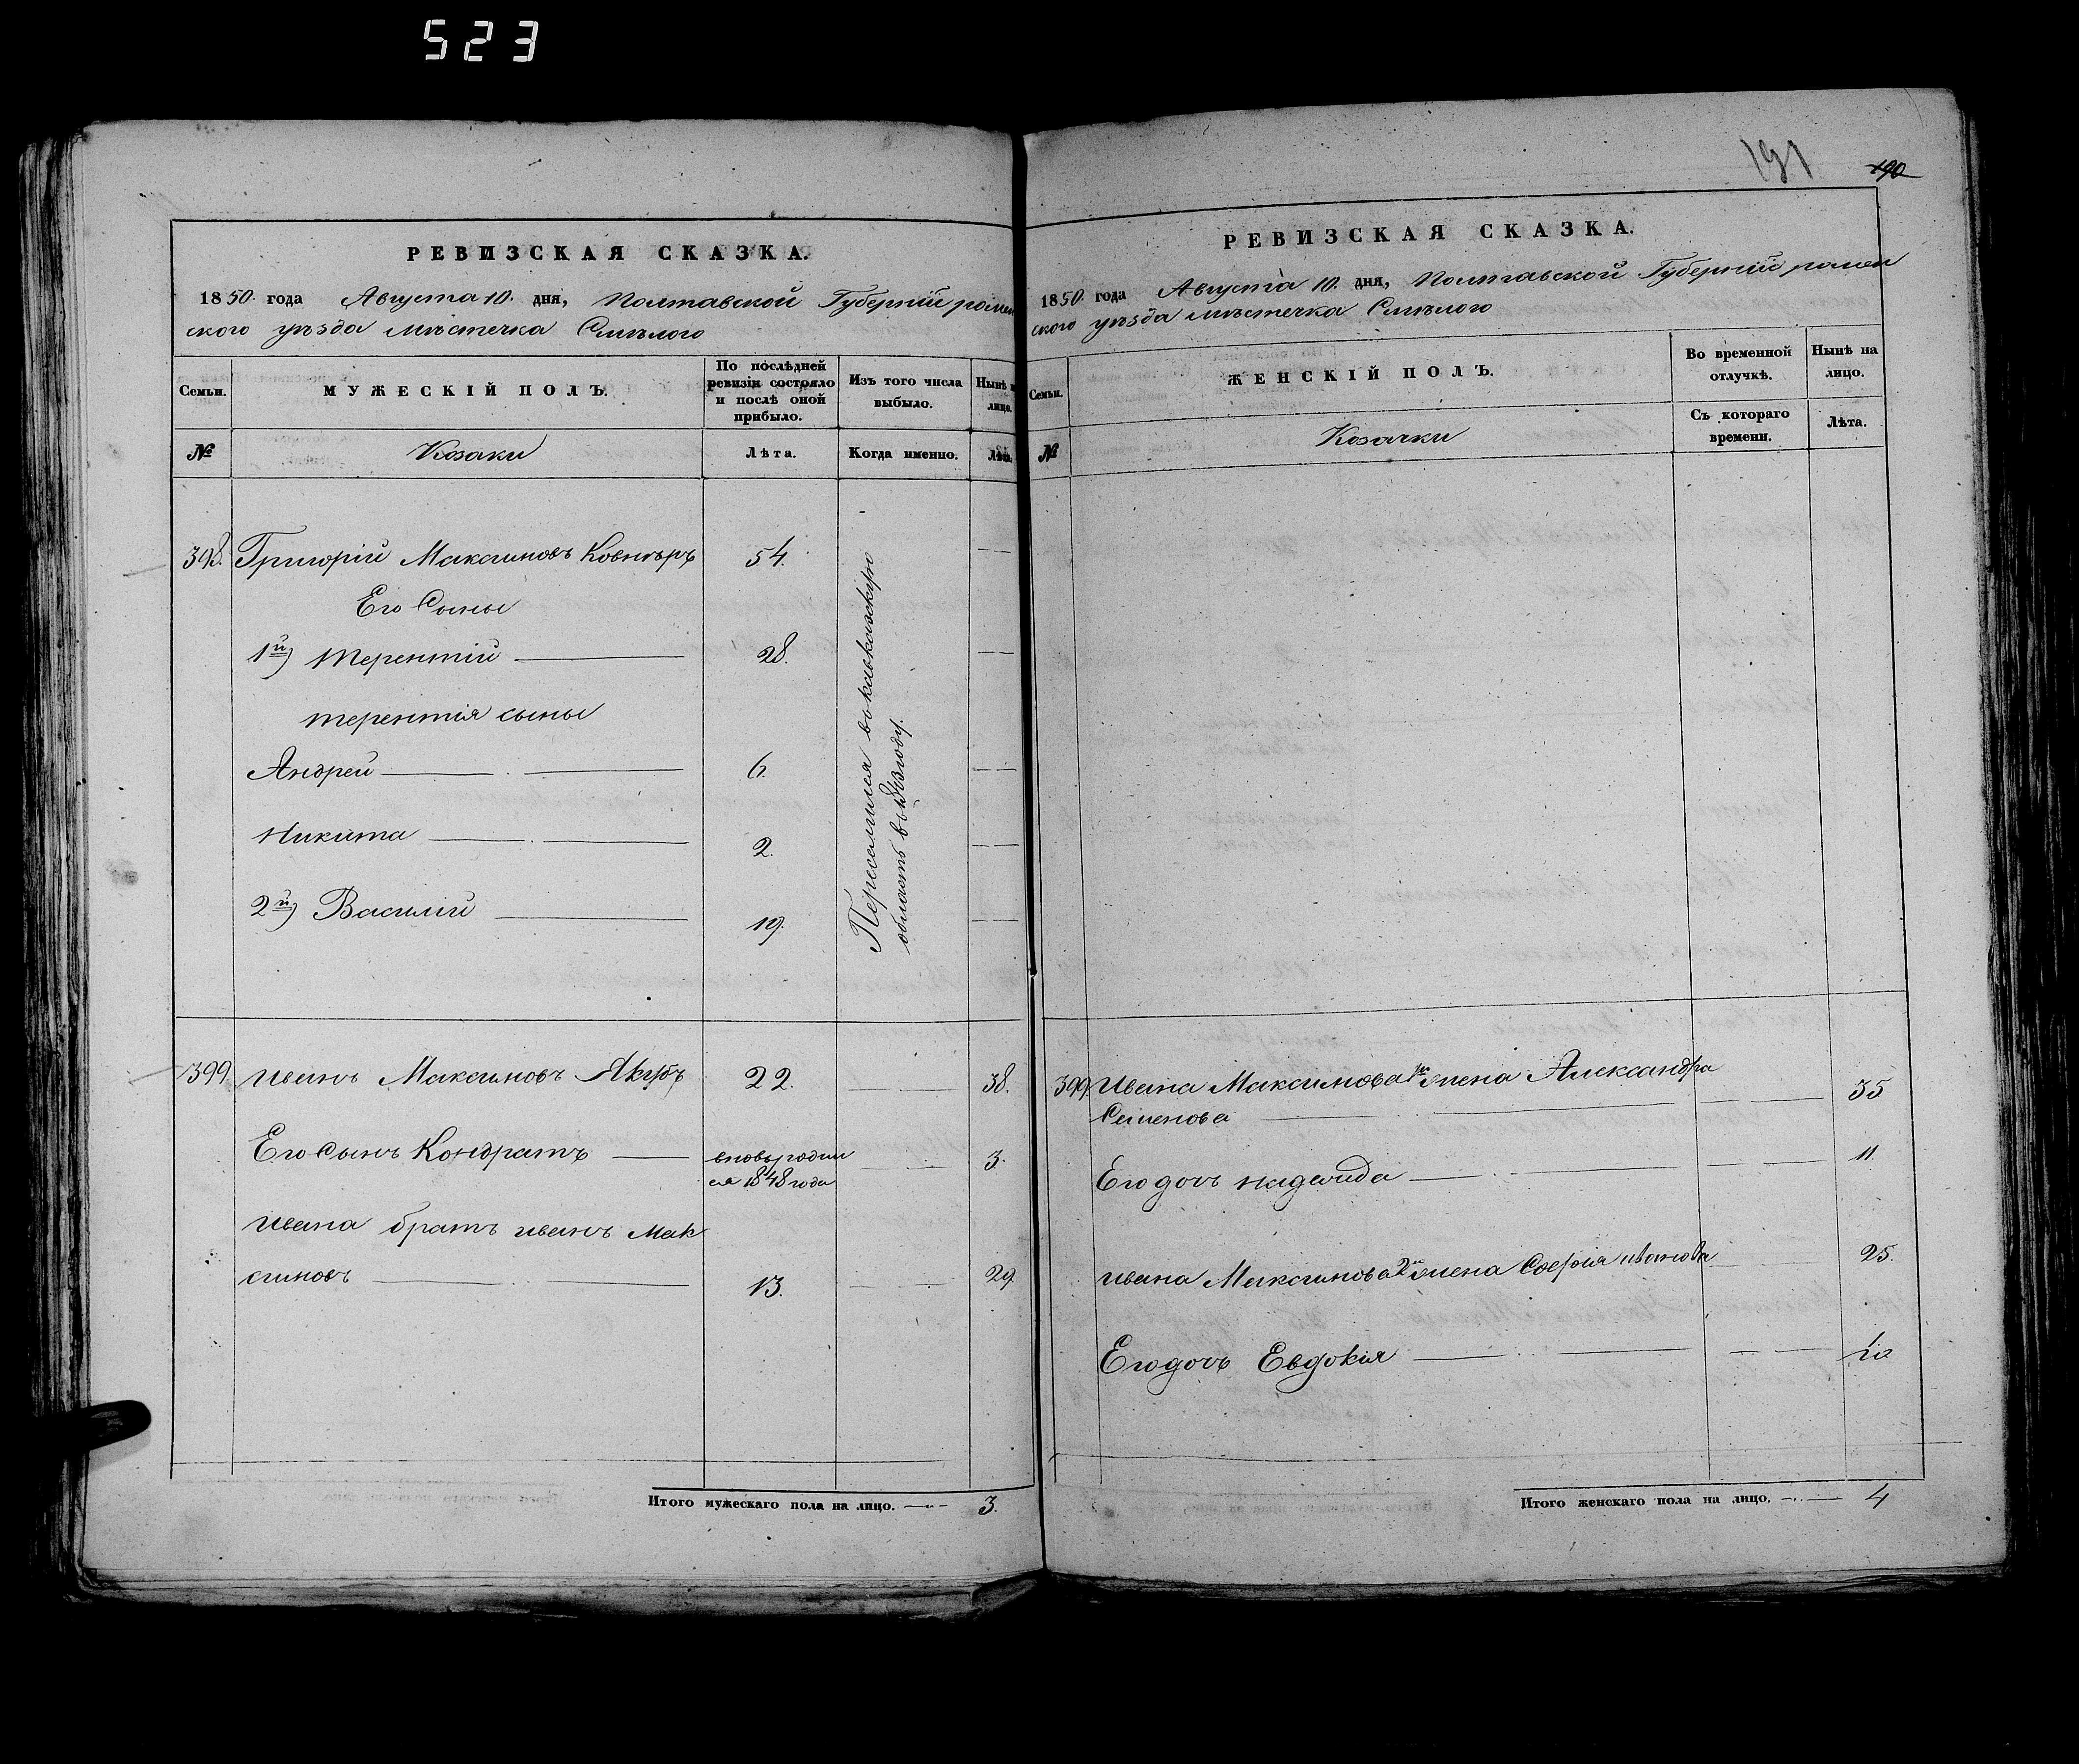 523
РЕВИЗСКАЯ СКАЗКА.
1850 года Августа 10. дня, Полтавской Губерніи ромен
ского уѣзда мѣстечка Смѣлого
Семьи.
МУЖЕСКІЙ ПОЛЪ.
По послѣдней ревизіи состояло и послѣ оной прибыло.
Изъ того числа выбыло.
Нынѣ на лицо.
№
Козаки
Лѣта.
Когда именно.
Лѣта.
398. Григорій Максимовъ Ковнѣръ 54. —
Его Сыны
1й) Терентій — 28. —
терентія сыны
Андрей — 6. —
Никита — 2. —
2й) Василій — 19. —
Переселился вокавказскую
область въ году.
399. иванъ Максимовъ Якубъ 22. — 38.
Его Сынъ Кондратъ — вновьродил 3.
ся 1848 года
ивана братъ иванъ Мак
симовъ — 13. — 29
Итого мужескаго пола на лицо. — 3.
191 190
РЕВИЗСКАЯ СКАЗКА.
1850 года Августа 10. дня, Полтавской Губерніи ромен
ского уѣзда мѣстечка Смѣлого
Семьи.
ЖЕНСКІЙ ПОЛЪ.
Во временной отлучкѣ.
Нынѣ на лицо.
№
Козачки
Съ котораго времени.
Лѣта.
399. Ивана Максимова 1го жена Александра
Семенова — 35
Его дочь надежда — 11.
ивана Максимова 2й жена Софія иванова — 25.
Его дочь Евдокія —
Итого женскаго пола на лицо. — 4